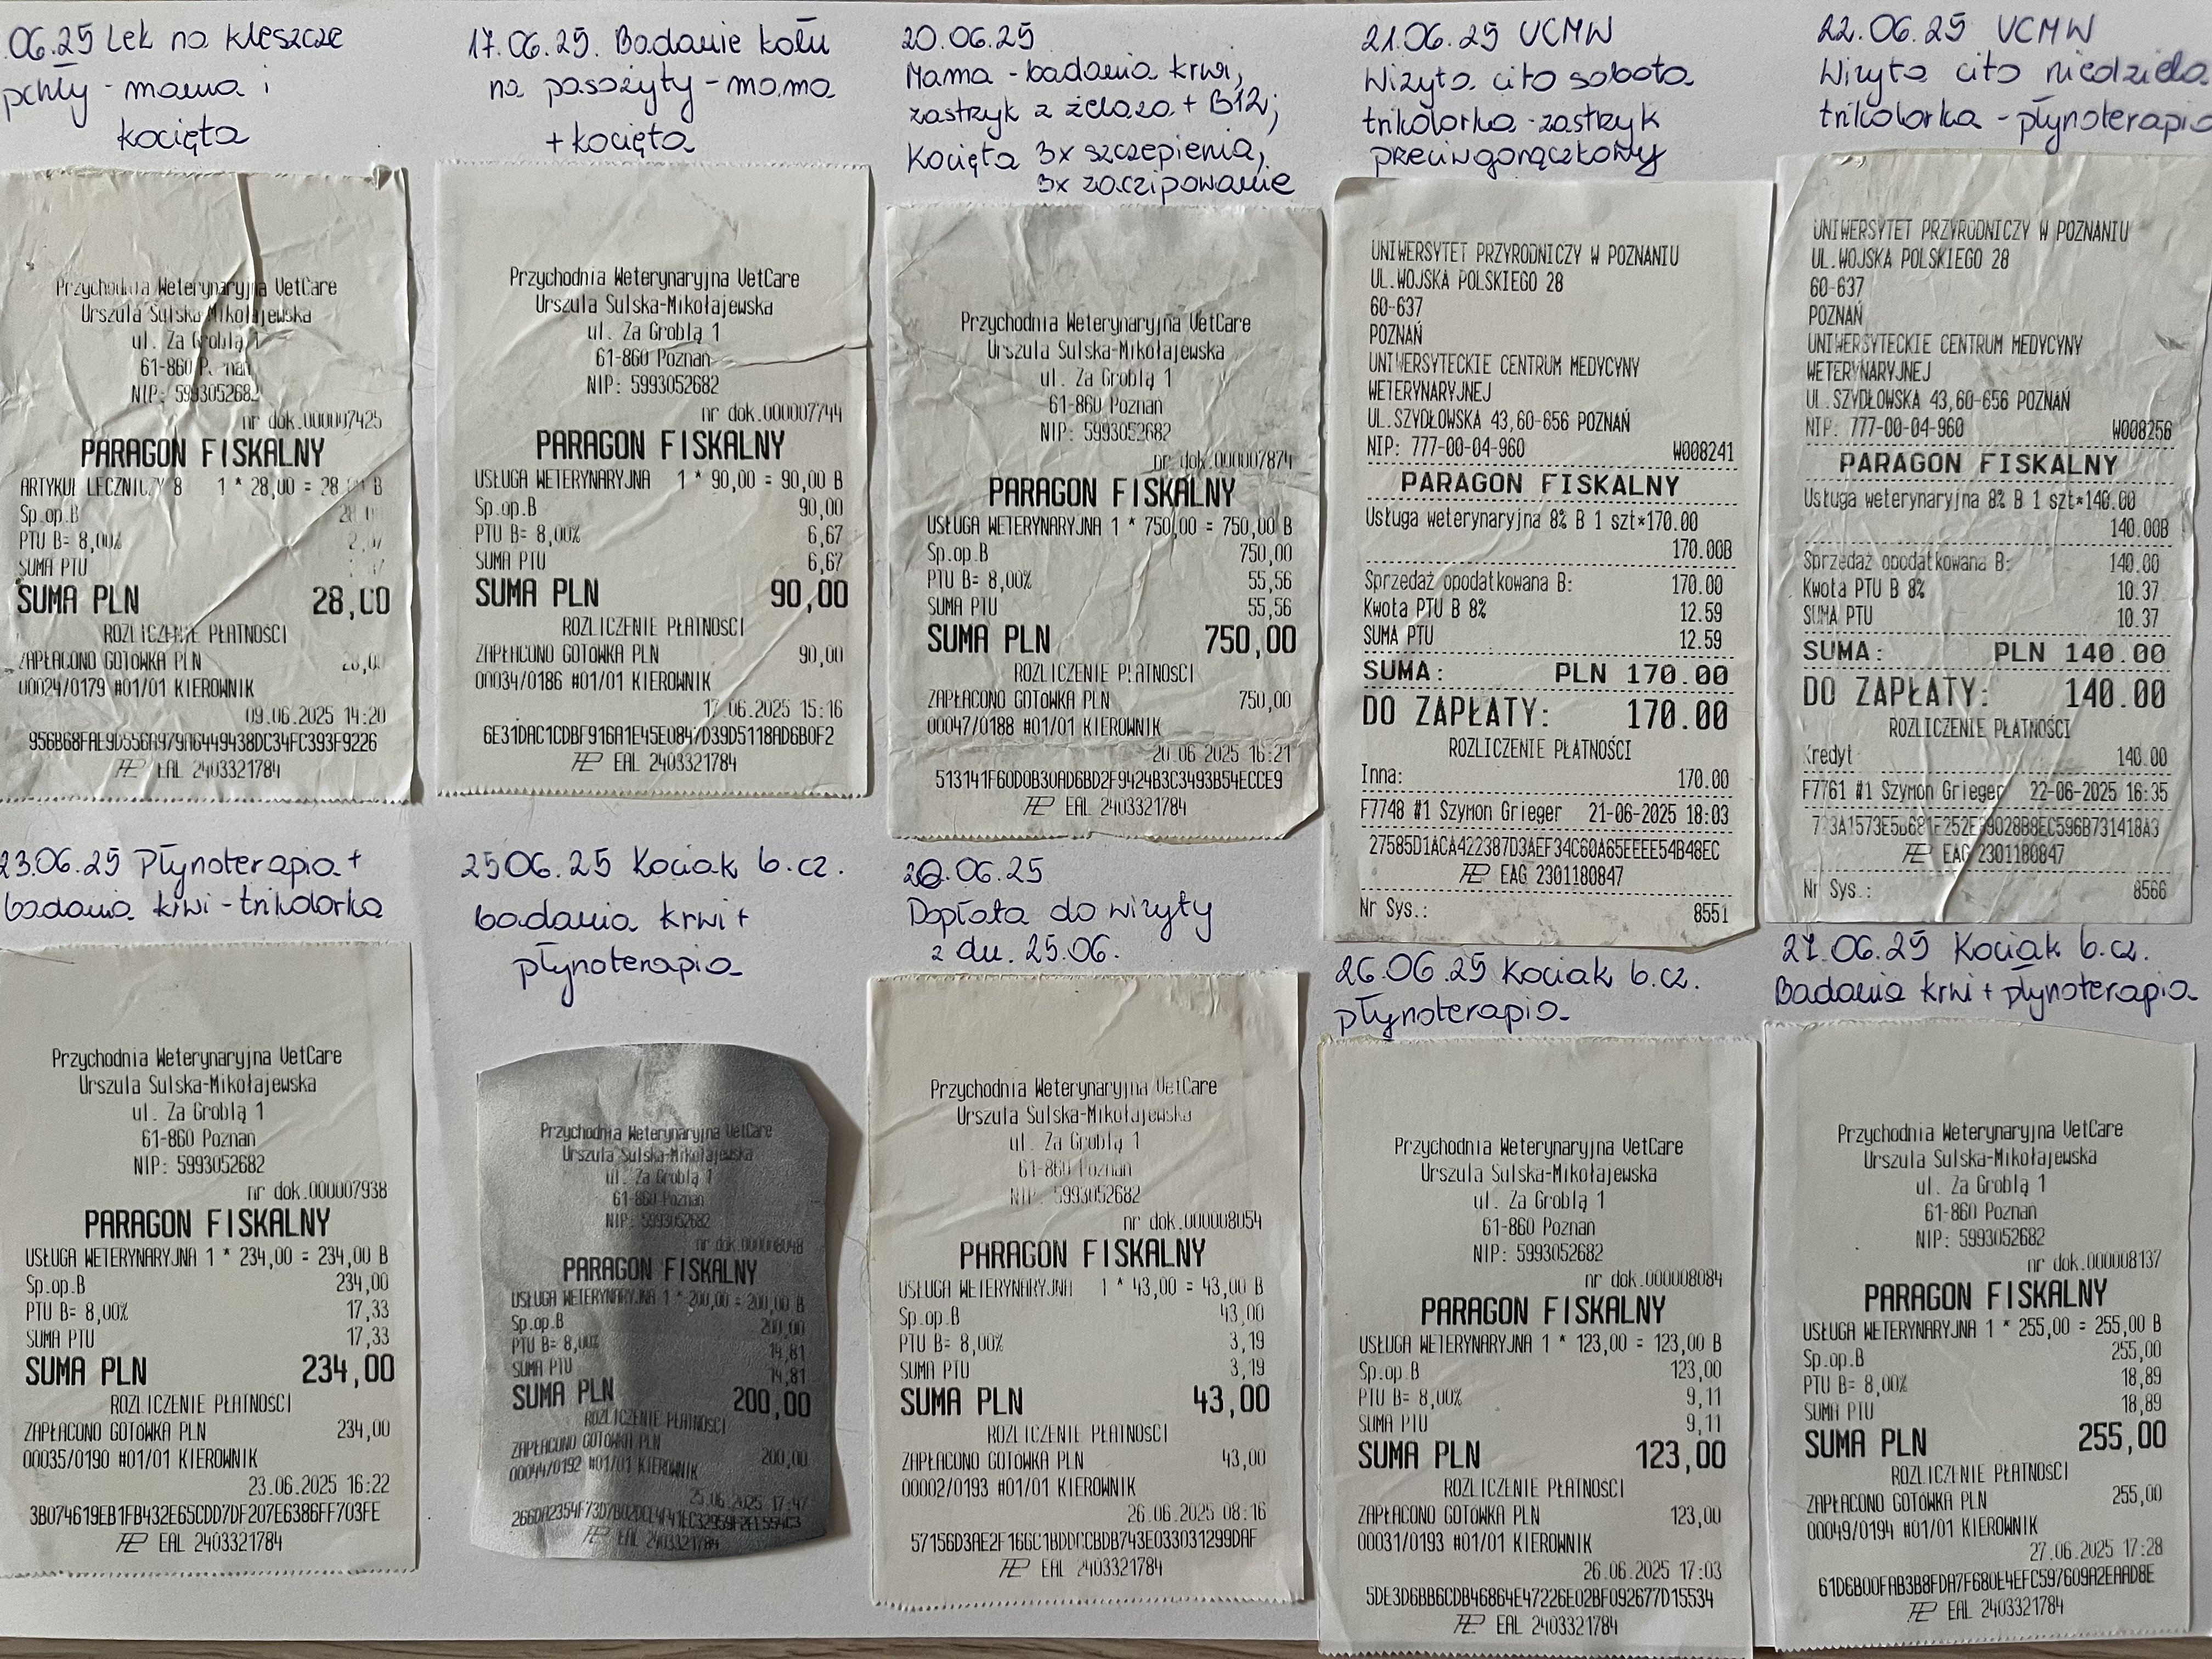 .06.25 Lek na kleszcze
pchły - mama i
kocięta
Przychodnia Weterynaryjna VetCare
Urszula Sulska-Mikołajewska
ul. Za Groblą 1
61-860 Poznan
NIP: 5993052682
nr dok.000007425
PARAGON FISKALNY
ARTYKUŁ LECZNICZY 8 1 * 28,00 = 28,00 B
Sp.op.B 28,00
PTU B= 8,00%
SUMA PTU
SUMA PLN 28,00
ROZLICZENIE PŁATNOŚCI
ZAPŁACONO GOTÓWKA PLN 28,00
00024/0179 #01/01 KIEROWNIK
09.06.2025 14:20
EAL 2403321784
17.06.25. Badanie kału
na pasożyty - mama
+ kocięta
Przychodnia Weterynaryjna VetCare
Urszula Sulska-Mikołajewska
ul. Za Groblą 1
61-860 Poznan
NIP: 5993052682
nr dok.000007744
PARAGON FISKALNY
USŁUGA WETERYNARYJNA 1 * 90,00 = 90,00 B
Sp.op.B 90,00
PTU B= 8,00% 6,67
SUMA PTU 6,67
SUMA PLN 90,00
ROZLICZENIE PŁATNOŚCI
ZAPŁACONO GOTÓWKA PLN 90,00
00034/0186 #01/01 KIEROWNIK
17.06.2025 15:16
6E31DAC1CDBF916A1E45E0847D39D5118AD6B0F2
EAL 2403321784
20.06.25
Mama - badania krwi,
zastrzyk z żelaza + B12;
Kocięta 3x szczepienia,
3x zaczipowanie
Przychodnia Weterynaryjna VetCare
Urszula Sulska-Mikołajewska
ul. Za Groblą 1
61-860 Poznan
NIP: 5993052682
nr dok.000007874
PARAGON FISKALNY
USŁUGA WETERYNARYJNA 1 * 750,00 = 750,00 B
Sp.op.B 750,00
PTU B= 8,00% 55,56
SUMA PTU 55,56
SUMA PLN 750,00
ROZLICZENIE PŁATNOŚCI
ZAPŁACONO GOTÓWKA PLN 750,00
00047/0188 #01/01 KIEROWNIK
20.06.2025 16:21
513141F60D0B30AD6BD2F9424B3C3493B54ECCE9
EAL 2403321784
21.06.25 UCMW
Wizyta cito sobota
trikolorka - zastrzyk
przeciwgorączkowy
UNIWERSYTET PRZYRODNICZY W POZNANIU
UL.WOJSKA POLSKIEGO 28
60-637
POZNAŃ
UNIWERSYTECKIE CENTRUM MEDYCYNY
WETERYNARYJNEJ
UL.SZYDŁOWSKA 43,60-656 POZNAŃ
NIP: 777-00-04-960 W008241
PARAGON FISKALNY
Usługa weterynaryjna 8% B 1 szt*170.00
170.00B
Sprzedaż opodatkowana B: 170.00
Kwota PTU B 8% 12.59
SUMA PTU 12.59
SUMA: PLN 170.00
DO ZAPŁATY: 170.00
ROZLICZENIE PŁATNOŚCI
Inna: 170.00
F7748 #1 Szymon Grieger 21-06-2025 18:03
27585D1ACA422387D3AEF34C60A65EEEE54B48EC
EAG 2301180847
Nr Sys.: 8551
22.06.25 UCMW
Wizyta cito niedziela
trikolorka - płynoterapia
UNIWERSYTET PRZYRODNICZY W POZNANIU
UL.WOJSKA POLSKIEGO 28
60-637
POZNAŃ
UNIWERSYTECKIE CENTRUM MEDYCYNY
WETERYNARYJNEJ
UL.SZYDŁOWSKA 43,60-656 POZNAŃ
NIP: 777-00-04-960 W008256
PARAGON FISKALNY
Usługa weterynaryjna 8% B 1 szt*140.00
140.00B
Sprzedaż opodatkowana B: 140.00
Kwota PTU B 8% 10.37
SUMA PTU 10.37
SUMA: PLN 140.00
DO ZAPŁATY: 140.00
ROZLICZENIE PŁATNOŚCI
Kredyt 140.00
F7761 #1 Szymon Grieger 22-06-2025 16:35
EAG 2301180847
Nr Sys.: 8566
23.06.25 Płynoterapia +
badania krwi - trikolorka
Przychodnia Weterynaryjna VetCare
Urszula Sulska-Mikołajewska
ul. Za Groblą 1
61-860 Poznan
NIP: 5993052682
nr dok.000007938
PARAGON FISKALNY
USŁUGA WETERYNARYJNA 1 * 234,00 = 234,00 B
Sp.op.B 234,00
PTU B= 8,00% 17,33
SUMA PTU 17,33
SUMA PLN 234,00
ROZLICZENIE PŁATNOŚCI
ZAPŁACONO GOTÓWKA PLN 234,00
00035/0190 #01/01 KIEROWNIK
23.06.2025 16:22
3B074619EB1FB432E65CDD7DF207E6386FF703FE
EAL 2403321784
25.06.25 Kociak b.cz.
badania krwi +
płynoterapia
Przychodnia Weterynaryjna VetCare
Urszula Sulska-Mikołajewska
ul. Za Groblą 1
61-860 Poznan
NIP: 5993052682
nr dok.000008048
PARAGON FISKALNY
USŁUGA WETERYNARYJNA 1 * 200,00 = 200,00 B
Sp.op.B 200,00
PTU B= 8,00% 14,81
SUMA PTU 14,81
SUMA PLN 200,00
ROZLICZENIE PŁATNOŚCI
ZAPŁACONO GOTÓWKA PLN 200,00
00044/0192 #01/01 KIEROWNIK
25.06.2025 17:47
EAL 2403321784
26.06.25
Dopłata do wizyty
z dn. 25.06.
Przychodnia Weterynaryjna VetCare
Urszula Sulska-Mikołajewska
ul. Za Groblą 1
61-860 Poznan
NIP: 5993052682
nr dok.000008054
PARAGON FISKALNY
USŁUGA WETERYNARYJNA 1 * 43,00 = 43,00 B
Sp.op.B 43,00
PTU B= 8,00% 3,19
SUMA PTU 3,19
SUMA PLN 43,00
ROZLICZENIE PŁATNOŚCI
ZAPŁACONO GOTÓWKA PLN 43,00
00002/0193 #01/01 KIEROWNIK
26.06.2025 08:16
EAL 2403321784
26.06.25 Kociak b.cz.
płynoterapia
Przychodnia Weterynaryjna VetCare
Urszula Sulska-Mikołajewska
ul. Za Groblą 1
61-860 Poznan
NIP: 5993052682
nr dok.000008084
PARAGON FISKALNY
USŁUGA WETERYNARYJNA 1 * 123,00 = 123,00 B
Sp.op.B 123,00
PTU B= 8,00% 9,11
SUMA PTU 9,11
SUMA PLN 123,00
ROZLICZENIE PŁATNOŚCI
ZAPŁACONO GOTÓWKA PLN 123,00
00031/0193 #01/01 KIEROWNIK
26.06.2025 17:03
5DE3D6BB6CDB46864E47226E02BF092677D15534
EAL 2403321784
27.06.25 Kociak b.cz.
Badania krwi + płynoterapia
Przychodnia Weterynaryjna VetCare
Urszula Sulska-Mikołajewska
ul. Za Groblą 1
61-860 Poznan
NIP: 5993052682
nr dok.000008137
PARAGON FISKALNY
USŁUGA WETERYNARYJNA 1 * 255,00 = 255,00 B
Sp.op.B 255,00
PTU B= 8,00% 18,89
SUMA PTU 18,89
SUMA PLN 255,00
ROZLICZENIE PŁATNOŚCI
ZAPŁACONO GOTÓWKA PLN 255,00
00049/0194 #01/01 KIEROWNIK
27.06.2025 17:28
61D6B00FAB3B8FDA7F680E4EFC597609A2EAAD8E
EAL 2403321784